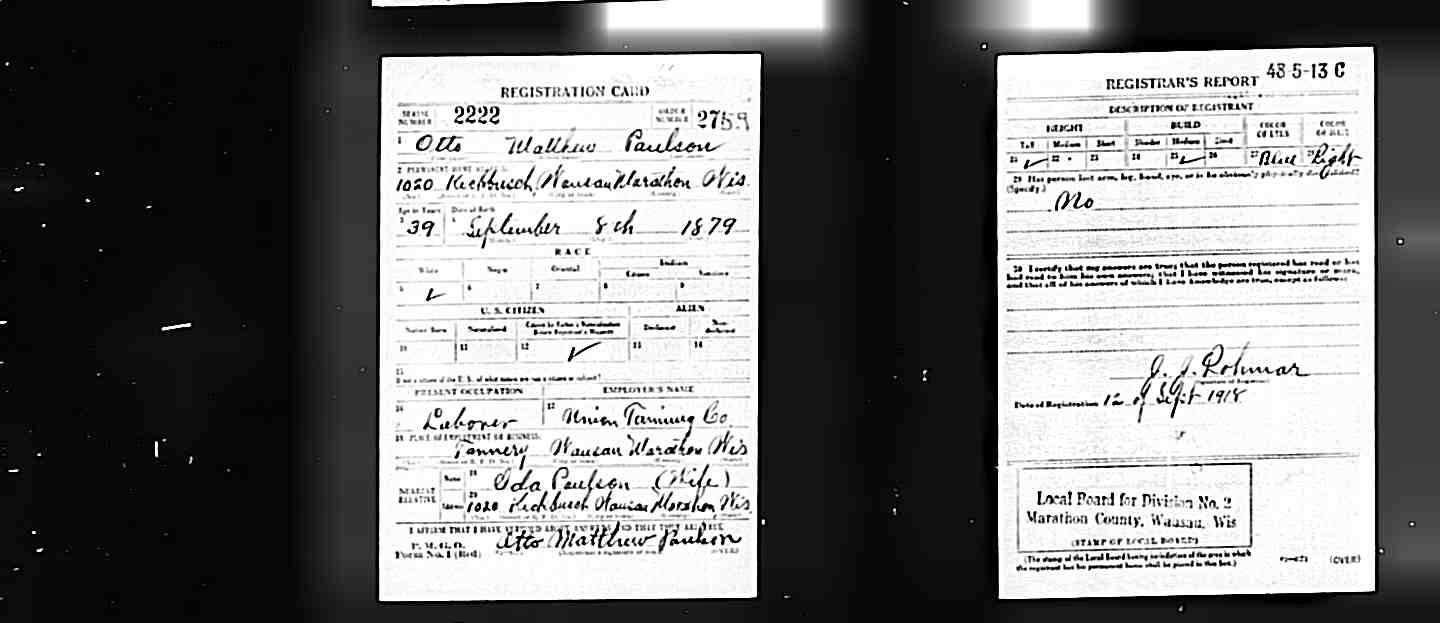 REGISTRATION CARD
SERIAL NUMBER 2222 ORDER NUMBER 2759
1 Otto Matthew Paulson
2 PERMANENT HOME ADDRESS
1020 Kickbusch Wausau Marathon Wis.
Age in Years Date of Birth
3 39 4 September 8th 1879
RACE
White Negro Oriental Indian
Citizen
5 ✓ 6 7 8 9
U. S. CITIZEN ALIEN
Native Born Naturalized Citizen by Father's Naturalization Before Registrant's Majority Declarant Non-declarant
10 11 12 ✓ 13 14
15
If not a citizen of the U. S., of what nation are you a citizen or subject?
PRESENT OCCUPATION EMPLOYER'S NAME
16 Laborer 17 Union Tanning Co.
18 PLACE OF EMPLOYMENT OR BUSINESS:
Tannery Wausau Marathon Wis
NEAREST RELATIVE Name 19 Ida Paulson (Wife)
Address 20 1020 Kickbusch Wausau Marathon Wis
I AFFIRM THAT I HAVE VERIFIED ABOVE ANSWERS AND THAT THEY ARE TRUE
P. M. G. O.
Form No. 1 (Red) Otto Matthew Paulson (OVER)
REGISTRAR'S REPORT 48-5-13 C
DESCRIPTION OF REGISTRANT
HEIGHT BUILD COLOR OF EYES COLOR OF HAIR
Tall Medium Short Slender Medium Stout
21 ✓ 22 23 24 25 ✓ 26 27 Blue 28 Light
29 Has person lost arm, leg, hand, eye, or is he obviously physically disqualified?
(Specify.)
No
30 I certify that my answers are true; that the person registered has read or has
had read to him his own answers; that I have witnessed his signature or mark,
and that all of his answers of which I have knowledge are true, except as follows:
J. J. Rohmar
(Signature of Registrar)
Date of Registration 12 of Sept 1918
Local Board for Division No. 2
Marathon County, Wausau, Wis
(STAMP OF LOCAL BOARD)
(The stamp of the Local Board having jurisdiction of the area in which
the registrant has his permanent home shall be placed in this box.)
(OVER)